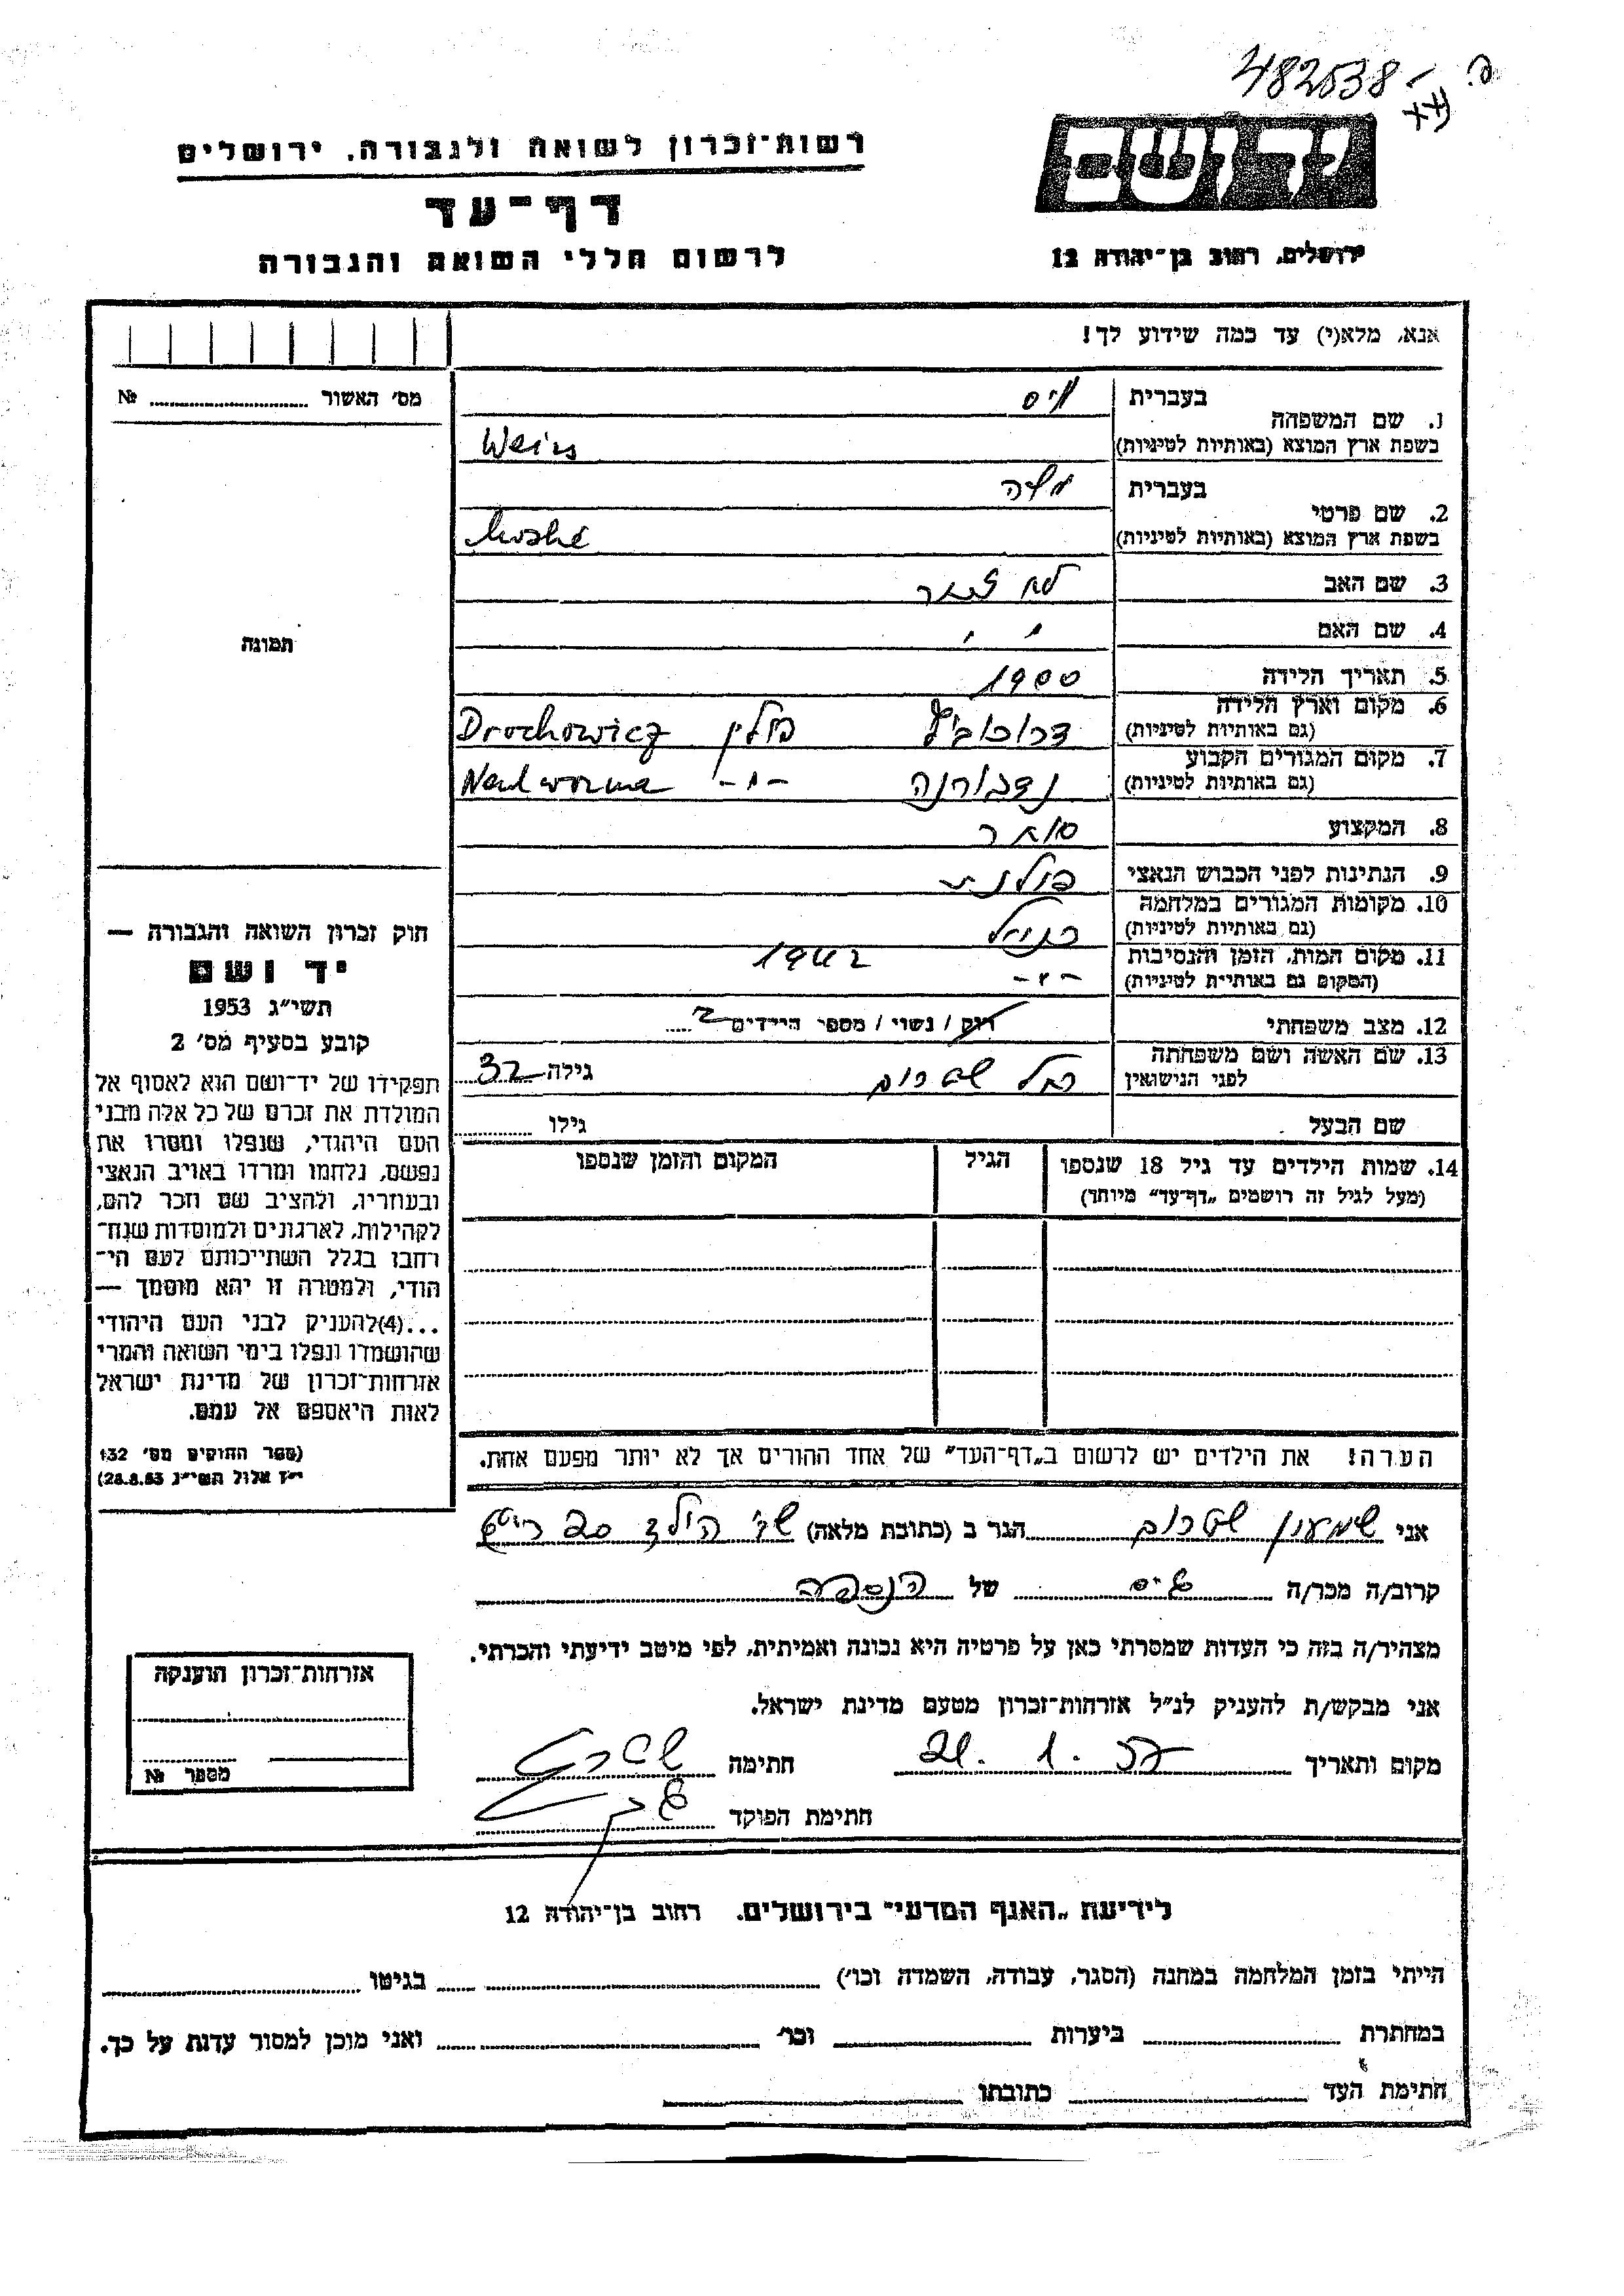 482538-
רשות־זכרון לשואה ולגבורה, ירושלים
דף־עד
לרשום חללי השואה והגבורה
יד ושם
ירושלים, רחוב בן־יהודה 12
אנא, מלא(י) עד כמה שידוע לך!
מס׳ האשור № 
תמונה
חוק זכרון השואה והגבורה —
יד ושם
תשי״ג 1953
קובע בסעיף מס׳ 2
תפקידו של יד־ושם הוא לאסוף אל
המולדת את זכרם של כל אלה מבני
העם היהודי, שנפלו ומסרו את
נפשם, נלחמו ומרדו באויב הנאצי
ובעוזריו, ולהציב שם וזכר להם,
לקהילות, לארגונים ולמוסדות שנח־
רחבו בגלל השתייכותם לעם הי־
הודי, ולמטרה זו יהא מוסמך —
...(4)להעניק לבני העם היהודי
שהושמדו ונפלו בימי השואה והמרי
אזרחות־זכרון של מדינת ישראל
לאות היאספם אל עמם.
(ספר החוקים מס׳ 132
י״ז אלול תשי״ג 28.8.53)
בעברית וייס
1. שם המשפחה
בשפת ארץ המוצא (באותיות לטיניות) Weiss
בעברית משה
2. שם פרטי
בשפת ארץ המוצא (באותיות לטיניות) Moshe
3. שם האב לא זכור
4. שם האם ״
5. תאריך הלידה 1900
6. מקום וארץ הלידה
(גם באותיות לטיניות) פולין Drochowicz
7. מקום המגורים הקבוע
(גם באותיות לטיניות) נדבורנה -״- Nadworna
8. המקצוע סוחר
9. הנתינות לפני הכבוש הנאצי פולנית
10. מקומות המגורים במלחמה
(גם באותיות לטיניות) כנ״ל
11. מקום המות, הזמן והנסיבות 1942
(המקום גם באותיית לטיניות) -״-
12. מצב משפחתי רוק / נשוי / מספר הילדים 2
13. שם האשה ושם משפחתה
לפני הנישואין גילה 32
שם הבעל גילו
14. שמות הילדים עד גיל 18 שנספו הגיל המקום והזמן שנספו
(מעל לגיל זה רושמים „דף־עד״ מיוחד)
הערה! את הילדים יש לרשום ב„דף־העד״ של אחד ההורים אך לא יותר מפעם אחת.
אני שמעון שטרום הגר ב (כתובת מלאה)
קרוב/ה מכר/ה גיס של הנספה
מצהיר/ה בזה כי העדות שמסרתי כאן על פרטיה היא נכונה ואמיתית, לפי מיטב ידיעתי והכרתי.
אני מבקש/ת להעניק לנ״ל אזרחות־זכרון מטעם מדינת ישראל.
מקום ותאריך 21. 1. 57 חתימה
חתימת הפוקד
אזרחות־זכרון הוענקה
מספר №
לידיעת „האגף המדעי״ בירושלים, רחוב בן־יהודה 12
הייתי בזמן המלחמה במחנה (הסגר, עבודה, השמדה וכו׳) בגיטו
במחתרת ביערות וכו׳ ואני מוכן למסור עדות על כך.
חתימת העד כתובתו